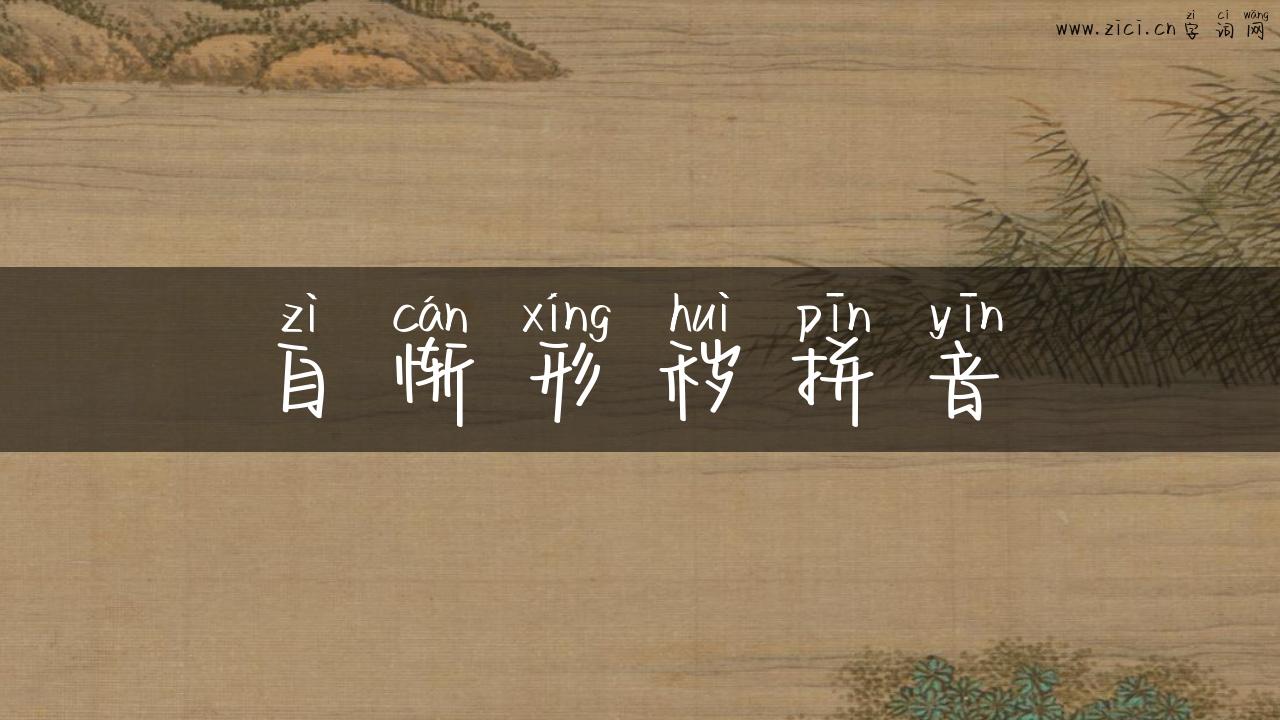 zì cí wǎng
www.zici.cn 字词网
zì cán xíng huì pīn yīn
自惭形秽拼音